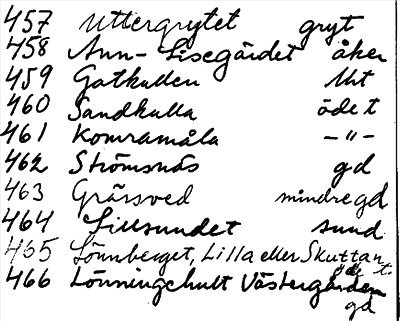 457 Uttergrytet gryt
458 Ann-Lisegärdet åker
459 Gatkullen
460 Sandkulla ödet
461 Komramåla -"-
462 Strömsnäs gd
463 Gräsved mindre gd
464 Lillsundet sund
465 Lönnberget, Lilla eller Skuttan
466 Lönningehult Västergården
gd